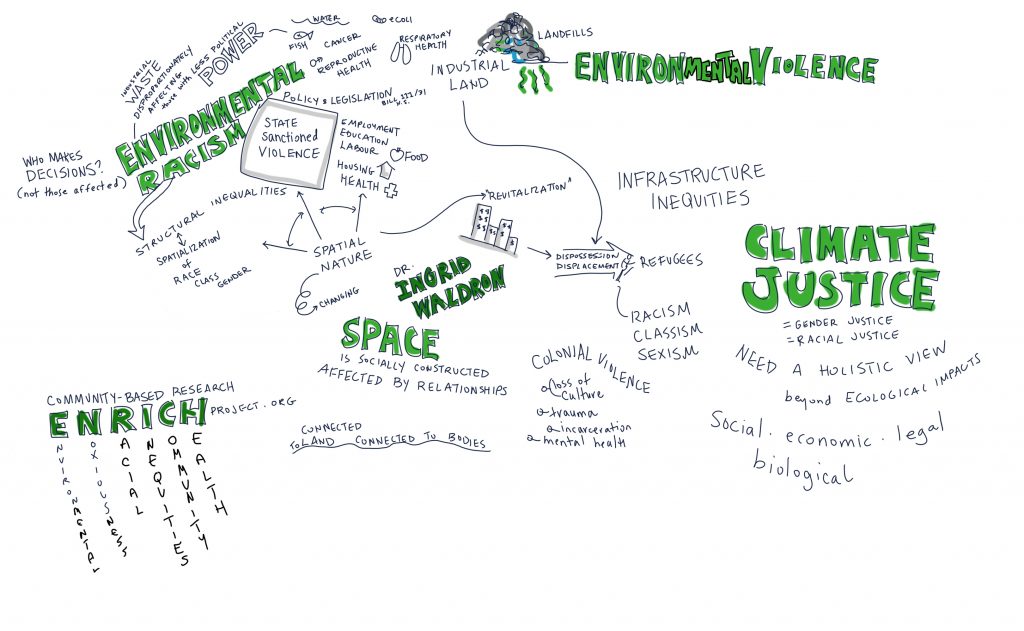 WATER
ecoli
FISH
CANCER
REPRODUCTIVE
HEALTH
RESPIRATORY
HEALTH
INDUSTRIAL
WASTE
DISPROPORTIONATELY
AFFECTING
those with LESS POLITICAL
POWER
ENVIRONMENTAL
RACISM
WHO MAKES
DECISIONS?
(not those affected)
POLICY & LEGISLATION
BILL 111/31
N.S.
STATE
Sanctioned
VIOLENCE
EMPLOYMENT
EDUCATION
LABOUR
FOOD
HOUSING
HEALTH
STRUCTURAL INEQUALITIES
SPATIALIZATION
of
RACE
CLASS
GENDER
SPATIAL
NATURE
CHANGING
INDUSTRIAL
LAND
LANDFILLS
ENVIRONMENTAL VIOLENCE
"REVITALIZATION"
$ $
$ $
$ $
$
DISPOSSESSION
DISPLACEMENT
REFUGEES
RACISM
CLASSISM
SEXISM
INFRASTRUCTURE
INEQUITIES
DR.
INGRID
WALDRON
SPACE
IS SOCIALLY CONSTRUCTED
AFFECTED BY RELATIONSHIPS
CONNECTED
TO LAND CONNECTED TO BODIES
COLONIAL VIOLENCE
loss of
culture
trauma
incarceration
mental health
CLIMATE
JUSTICE
= GENDER JUSTICE
= RACIAL JUSTICE
NEED A HOLISTIC VIEW
beyond ECOLOGICAL IMPACTS
Social. economic. legal
biological
COMMUNITY-BASED RESEARCH
ENRICH
PROJECT.ORG
ENVIRONMENTAL
NOXIOUSNESS
RACIAL
INEQUITIES
COMMUNITY
HEALTH